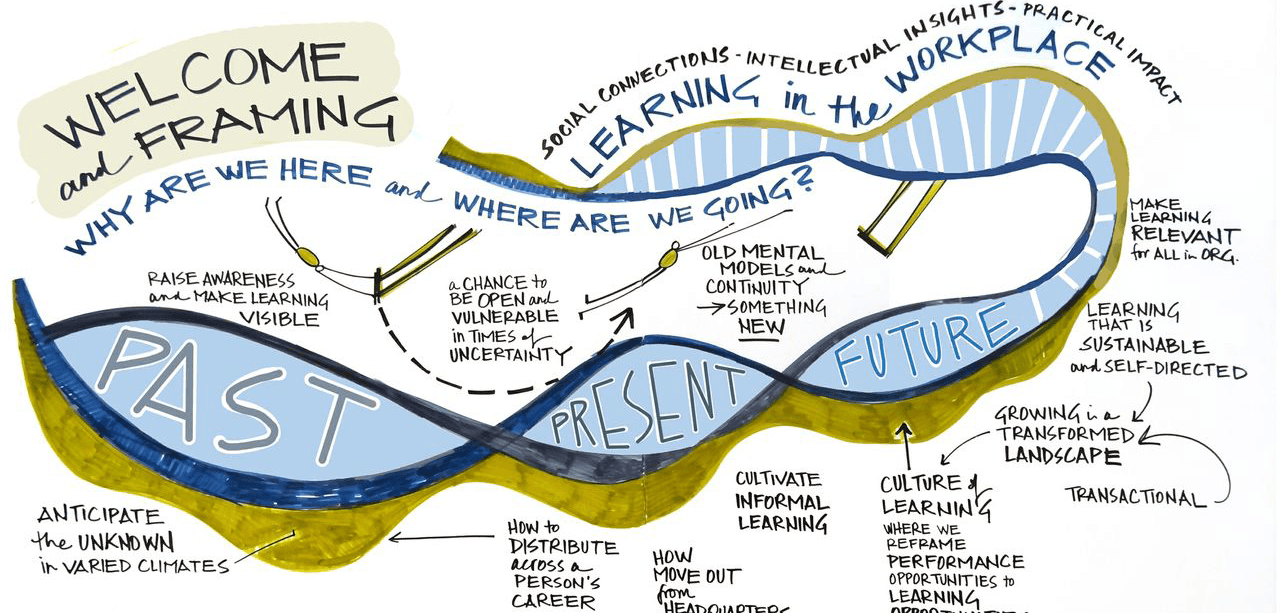 WELCOME
and FRAMING
WHY ARE WE HERE and WHERE ARE WE GOING?
SOCIAL CONNECTIONS - INTELLECTUAL INSIGHTS - PRACTICAL IMPACT
LEARNING in the WORKPLACE
RAISE AWARENESS
and MAKE LEARNING
VISIBLE
a CHANCE to
BE OPEN and
VULNERABLE
in TIMES of
UNCERTAINTY
OLD MENTAL
MODELS and
CONTINUITY
→SOMETHING
NEW
MAKE
LEARNING
RELEVANT
for ALL in ORG.
PAST
PRESENT
FUTURE
LEARNING
THAT IS
SUSTAINABLE
and SELF-DIRECTED
GROWING in a
TRANSFORMED
LANDSCAPE
TRANSACTIONAL
ANTICIPATE
the UNKNOWN
in VARIED CLIMATES
HOW to
DISTRIBUTE
across a
PERSON'S
CAREER
HOW
MOVE OUT
from
HEADQUARTERS
CULTIVATE
INFORMAL
LEARNING
CULTURE of
LEARNING
WHERE WE
REFRAME
PERFORMANCE
OPPORTUNITIES to
LEARNING
OPPORTUNITIES